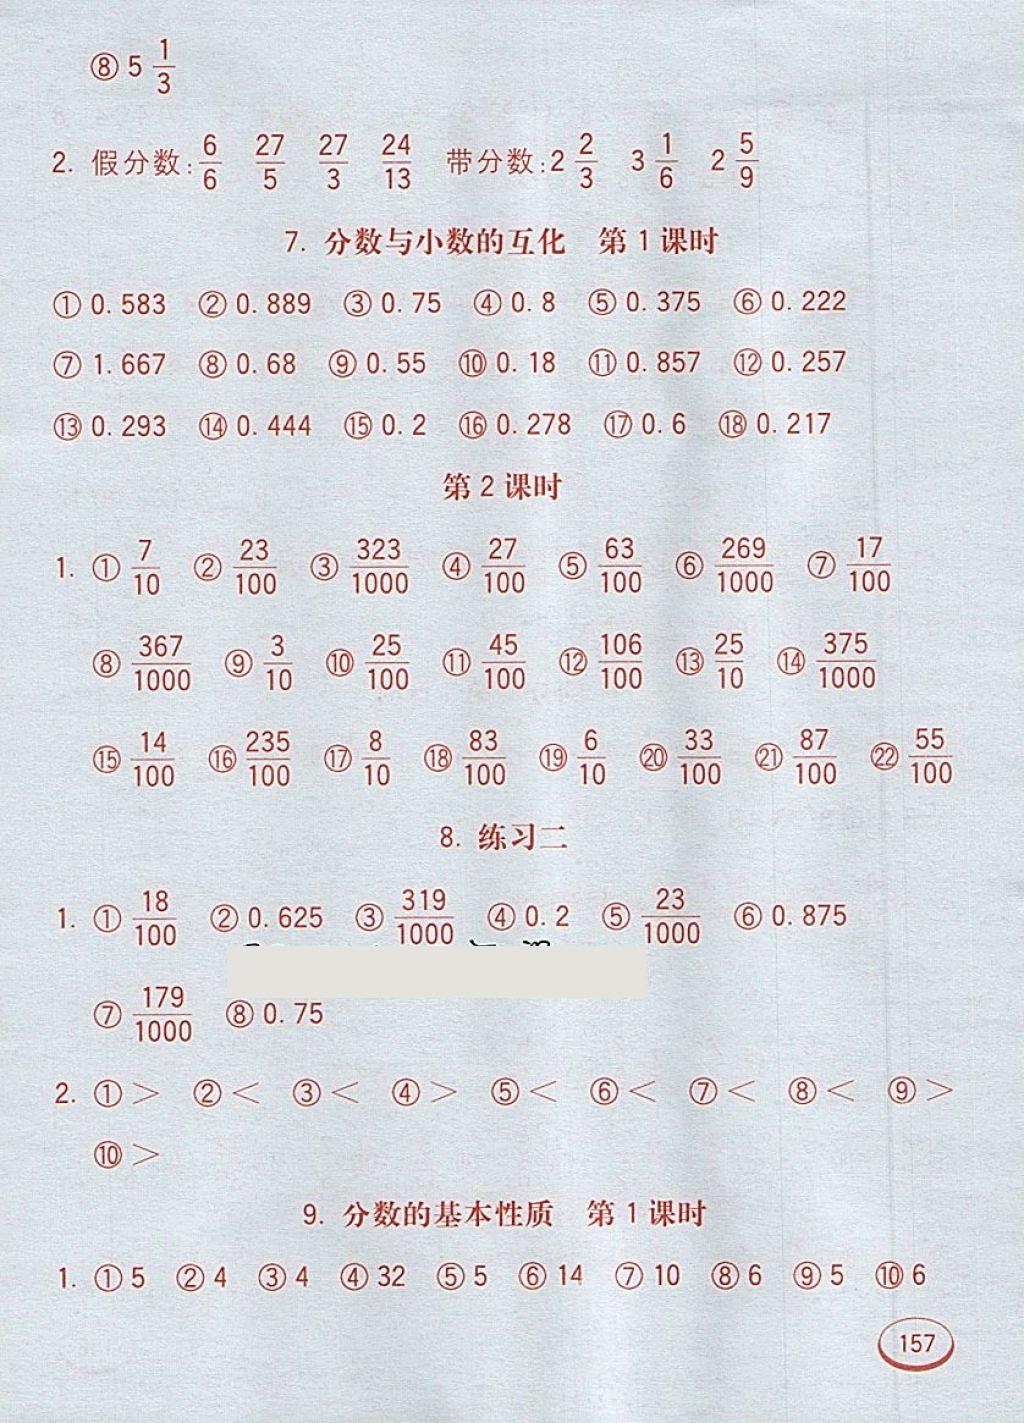 ⑧ 5 1/3
2. 假分数: 6/6 27/5 27/3 24/13 带分数: 2 2/3 3 1/6 2 5/9
7. 分数与小数的互化 第 1 课时
① 0.583 ② 0.889 ③ 0.75 ④ 0.8 ⑤ 0.375 ⑥ 0.222
⑦ 1.667 ⑧ 0.68 ⑨ 0.55 ⑩ 0.18 ⑪ 0.857 ⑫ 0.257
⑬ 0.293 ⑭ 0.444 ⑮ 0.2 ⑯ 0.278 ⑰ 0.6 ⑱ 0.217
第 2 课时
1. ① 7/10 ② 23/100 ③ 323/1000 ④ 27/100 ⑤ 63/100 ⑥ 269/1000 ⑦ 17/100
⑧ 367/1000 ⑨ 3/10 ⑩ 25/100 ⑪ 45/100 ⑫ 106/100 ⑬ 25/10 ⑭ 375/1000
⑮ 14/100 ⑯ 235/100 ⑰ 8/10 ⑱ 83/100 ⑲ 6/10 ⑳ 33/100 ㉑ 87/100 ㉒ 55/100
8. 练习二
1. ① 18/100 ② 0.625 ③ 319/1000 ④ 0.2 ⑤ 23/1000 ⑥ 0.875
⑦ 179/1000 ⑧ 0.75
2. ① > ② < ③ < ④ > ⑤ < ⑥ < ⑦ < ⑧ < ⑨ >
⑩ >
9. 分数的基本性质 第 1 课时
1. ① 5 ② 4 ③ 4 ④ 32 ⑤ 5 ⑥ 14 ⑦ 10 ⑧ 6 ⑨ 5 ⑩ 6
157